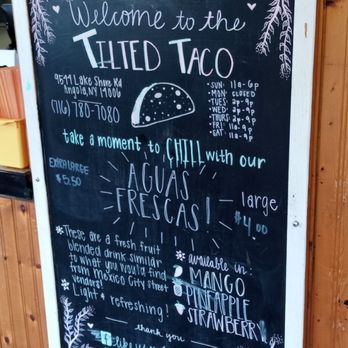 Welcome to the
TILTED TACO
9544 Lake Shore Rd
Angola, NY 14006
(716) 780-7080
SUN: 11a-6p
MON: CLOSED
TUES: 2p-9p
WED: 2p-9p
THURS: 2p-9p
FRI: 11a-9p
SAT: 11a-9p
take a moment to CHILL with our
AGUAS
FRESCAS!
EXTRA LARGE
$5.50
large
$4.00
*These are a fresh fruit
blended drink similar
to what you would find
from Mexico City street
vendors!
Light & refreshing!
*available in:
MANGO
PINEAPPLE
STRAWBERRY
thank you
f like